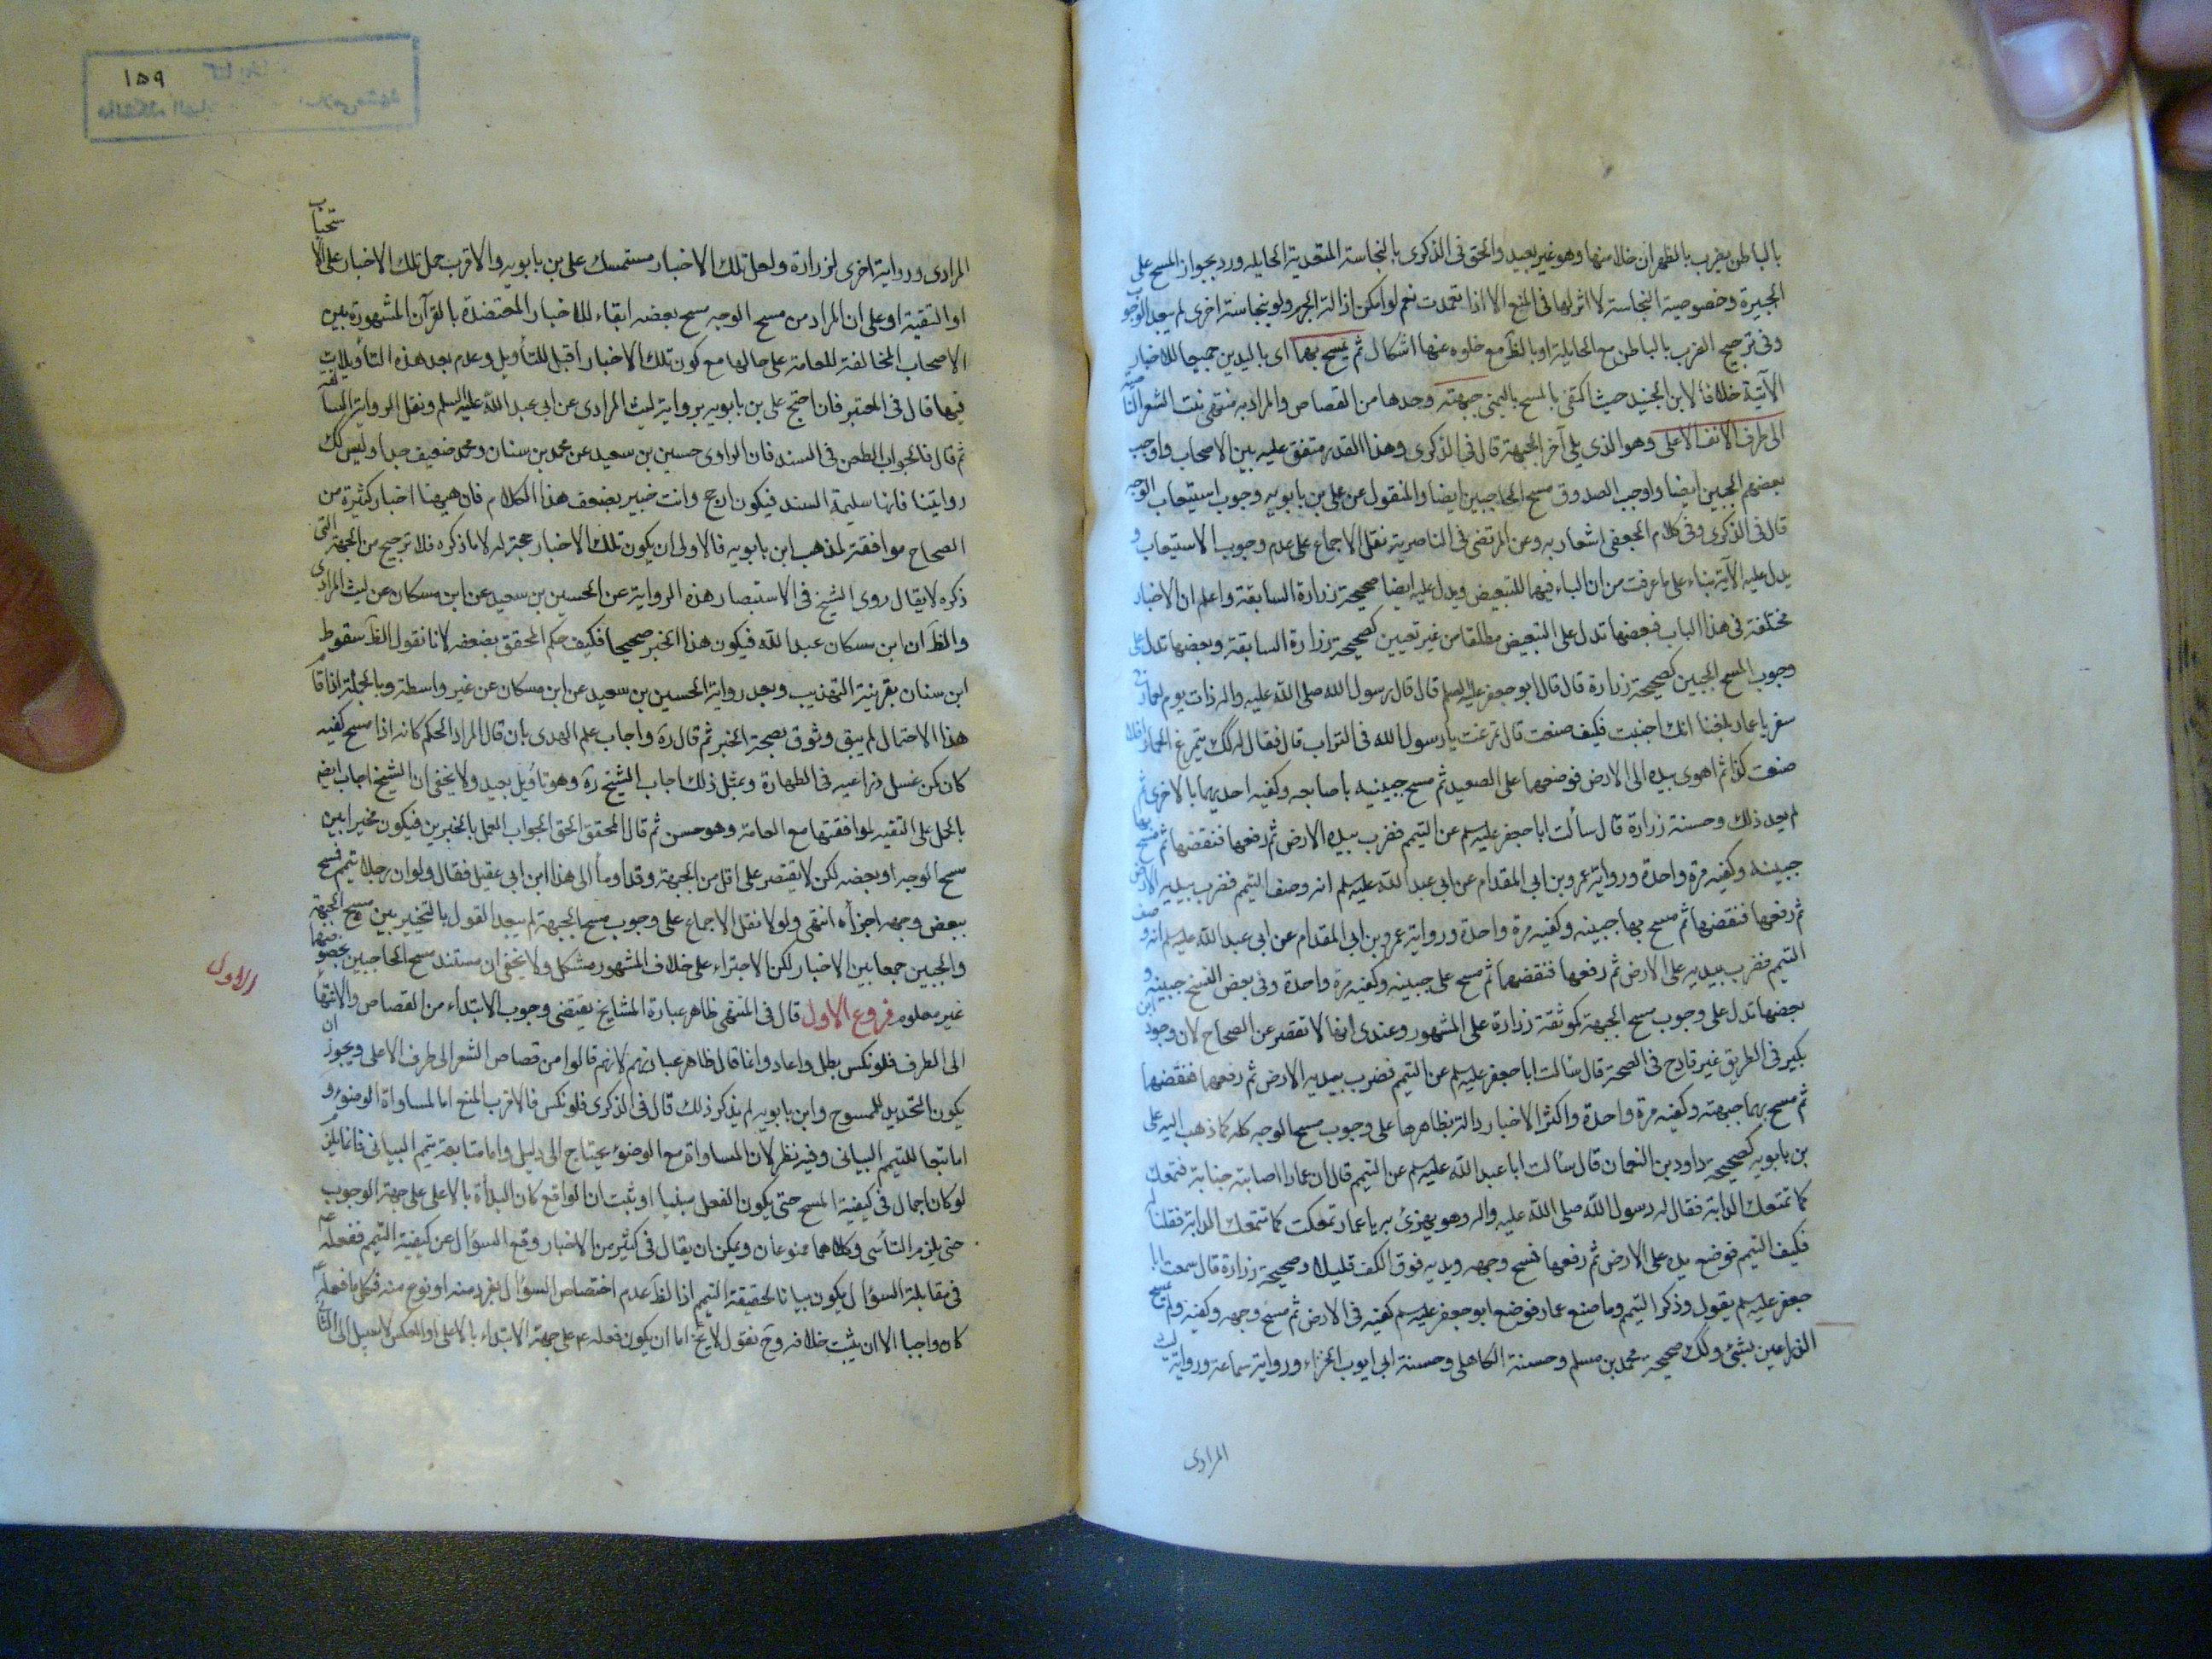 بالباطن يضرب بالظهر ان خلا منها وهو غير بعيد والحق في الذكرى بالنجاسة المتعدية الحايله ورد بجواز المسح على
الجبيرة وخصوصية النجاسة لا اثر لها في المنع الا اذا تعدت نعم لو امكن ازالة الجرم ولو بنجاسة اخرى لم يبعد الوجوب
وفي ترجيح الضرب بالباطن مع الحايلة او بالظ مع خلوه عنها اشكال ثم يمسح بهما اى باليدين جميعا للاخبار
الآتية خلافا لابن الجنيد حيث اكتفى بالمسح باليمنى جبهته وحدها من القصاص والمراد به منتهى نبت الشعر الناصية
الى طرف الانف الاعلى وهو الذى يلى آخر الجبهة قال في الذكرى وهذا القدر متفق عليه بين الاصحاب واوجب
بعضهم الجبين ايضا واوجب الصدوق مسح الحاجبين ايضا والمنقول عن على بن بابويه وجوب استيعاب الوجه
قال في الذكرى وفي كلام الجعفى اشعار به وعن المرتضى في الناصرية نقل الاجماع على عدم وجوب الاستيعاب و
يدل عليه الآية بناء على ما عرفت من ان الباء فيها للتبعيض ويدل عليه ايضا صحيحة زرارة السابقة واعلم ان الاخبار
مختلفة في هذا الباب فبعضها تدل على التبعيض مطلقا من غير تعيين كصحيحة زرارة السابقة وبعضها تدل على
وجوب المسح الجبين كصحيحة زرارة قال قال ابو جعفر عليه السلم قال قال رسول الله صلى الله عليه واله ذات يوم لعمار في
سفر يا عمار بلغنا انك اجنبت فكيف صنعت قال تمرغت يا رسول الله في التراب قال فقال له كك يتمرغ الحمار افلا
صنعت كذا ثم اهوى بيده الى الارض فوضعهما على الصعيد ثم مسح جبينيه باصابعه وكفيه احديهما بالاخرى ثم
لم يعد ذلك وحسنة زرارة قال سألت ابا جعفر عليه سلم عن التيمم فضرب بيده الارض ثم رفعها فنفضها ثم مسح بها
جبينه وكفيه مرة واحدة ورواية عمرو بن ابى المقدام عن ابى عبد الله عليه سلم انه وصف التيمم فضرب بيديه الارض
ثم رفعها فنفضها ثم مسح بها جبينه وكفيه مرة واحدة ورواية عمرو بن ابى المقدام عن ابى عبد الله عليه سلم انه وصف
التيمم فضرب بيديه على الارض ثم رفعها فنفضهما ثم مسح على جبينه وكفيه مرة واحدة وفي بعض النسخ جبينيه و
بعضها تدل على وجوب مسح الجبهة كموثقة زرارة على المشهور وعندى انها لا تقصر عن الصحاح لان وجود ابن
بكير في الطريق غير قادح في الصحة قال سألت ابا جعفر عليه سلم عن التيمم فضرب بيديه الارض ثم رفعهما فنفضهما
ثم مسح بهما جبهته وكفيه مرة واحدة واكثر الاخبار دالة بظاهرها على وجوب مسح الوجه كله كما ذهب اليه على
بن بابويه كصحيحة داود بن النعمان قال سألت ابا عبد الله عليه سلم عن التيمم قال ان عمارا اصابته جنابة فتمعك
كما تتمعك الدابة فقال له رسول الله صلى الله عليه واله وهو يهزئ به يا عمار تمعكت كما تتمعك الدابة فقلنا له
فكيف التيمم فوضع يده على الارض ثم رفعها فمسح وجهه ويديه فوق الكف قليلا وصحيحة زرارة قال سمعت ابا
جعفر عليه سلم يقول وذكر التيمم وما صنع عمار فوضع ابو جعفر عليه سلم كفيه في الارض ثم مسح وجهه وكفيه ولم يمسح
الذراعين بشئ وكك صحيحة محمد بن مسلم وحسنة الكاهلى وحسنة ابى ايوب الخزاء ورواية سماعة ورواية ليث
المرادى
١٥٩
المرادى ورواية اخرى لزرارة ولعل تلك الاخبار مستمسك على بن بابويه والاقرب حمل تلك الاخبار على الاستحباب
او التقية او على ان المراد من مسح الوجه مسح بعضه ابقاء للاخبار المعتضدة بالقرآن المشهورة بين
الاصحاب المخالفة للعامة على حالها مع كون تلك الاخبار اقبل للتأويل وعدم بعد هذه التأويلات
فيها قال في المعتبر فان احتج على بن بابويه برواية ليث المرادى عن ابى عبد الله عليه السلم ونقل الرواية السالفة
ثم قال فالجواب الطعن في السند فان الراوى حسين بن سعيد عن محمد بن سنان ومحمد ضعيف جدا وليس كك
روايتنا فانها سليمة السند فيكون ارجح وانت خبير بضعف هذا الكلام فان ههنا اخبار كثيرة من
الصحاح موافقة لمذهب ابن بابويه فالاولى ان يكون تلك الاخبار حجة له لا ما ذكره فلا ترجيح من الجهة التى
ذكره لا يقال روى الشيخ في الاستبصار هذه الرواية عن الحسين بن سعيد عن ابن مسكان عن ليث المرادى
والظ ان ابن مسكان عبد الله فيكون هذا الخبر صحيحا فكيف حكم المحقق بضعفه لانا نقول الظ سقوط
ابن سنان بقرينة التهذيب وبعد رواية الحسين بن سعيد عن ابن مسكان عن غير واسطة وبالجملة اذا قام
هذا الاحتمال لم يبق وثوق بصحة الخبر ثم قال ره واجاب علم الهدى بان قال المراد الحكم كانه اذا مسح كفيه
كان كمن غسل ذراعيه في الطهارة وبمثل ذلك اجاب الشيخ ره وهو تأويل بعيد ولا يخفى ان الشيخ اجاب ايضه
بالحمل على التقيه لموافقتها مع العامة وهو حسن ثم قال المحقق الحق الجواب العمل بالخبرين فيكون مخيرا بين
مسح الوجه او بعضه لكن لا يقتصر على اقل من الجبهة وقد اومأ الى هذا ابن ابى عقيل فقال ولو ان رجلا تيمم فمسح
ببعض وجهه اجزأه انتهى ولولا نقل الاجماع على وجوب مسح الجبهة لم يبعد القول بالتخيير بين مسح الجبهة
والجبين جمعا بين الاخبار لكن الاجتراء على خلاف المشهور مشكل ولا يخفى ان مستند مسح الحاجبين بخصوصهما
غير معلوم فروع الاول قال في المنتهى ظاهر عبارة المشايخ يقتضى وجوب الابتداء من القصاص والانتهاء
الاول
الى الطرف فلو نكس بطل واعاد وانما قال ظاهر عبارتهم لانهم قالوا من قصاص الشعر الى طرف الاعلى ويجوز ان
يكون التحديد للممسوح وابن بابويه لم يذكر ذلك قال في الذكرى فلو نكس فالاقرب المنع اما لمساواة الوضوء و
اما تبعا للتيمم البيانى وفيه نظر لان المساواة مع الوضوء يحتاج الى دليل واما متابعة تيمم البيانى فانما يلزم
لو كان اجمال في كيفية المسح حتى يكون الفعل مبينا او ثبت ان الواقع كان البدأة بالاعلى على جهة الوجوب
حتى يلزم التأسى وكلاهما ممنوعان ويمكن ان يقال في كثير من الاخبار وقع السؤال عن كيفية التيمم ففعله ع
في مقابلة السؤال يكون بيانا لحقيقة التيمم اذا لظ عدم اختصاص السؤال بفرد منه او نوع منه فكل ما فعله ع
كان واجبا الا ان يثبت خلافه وح نقول لا يخ اما ان يكون فعله ع على جهة الابتداء بالاعلى او العكس لا سبيل الى الثانى